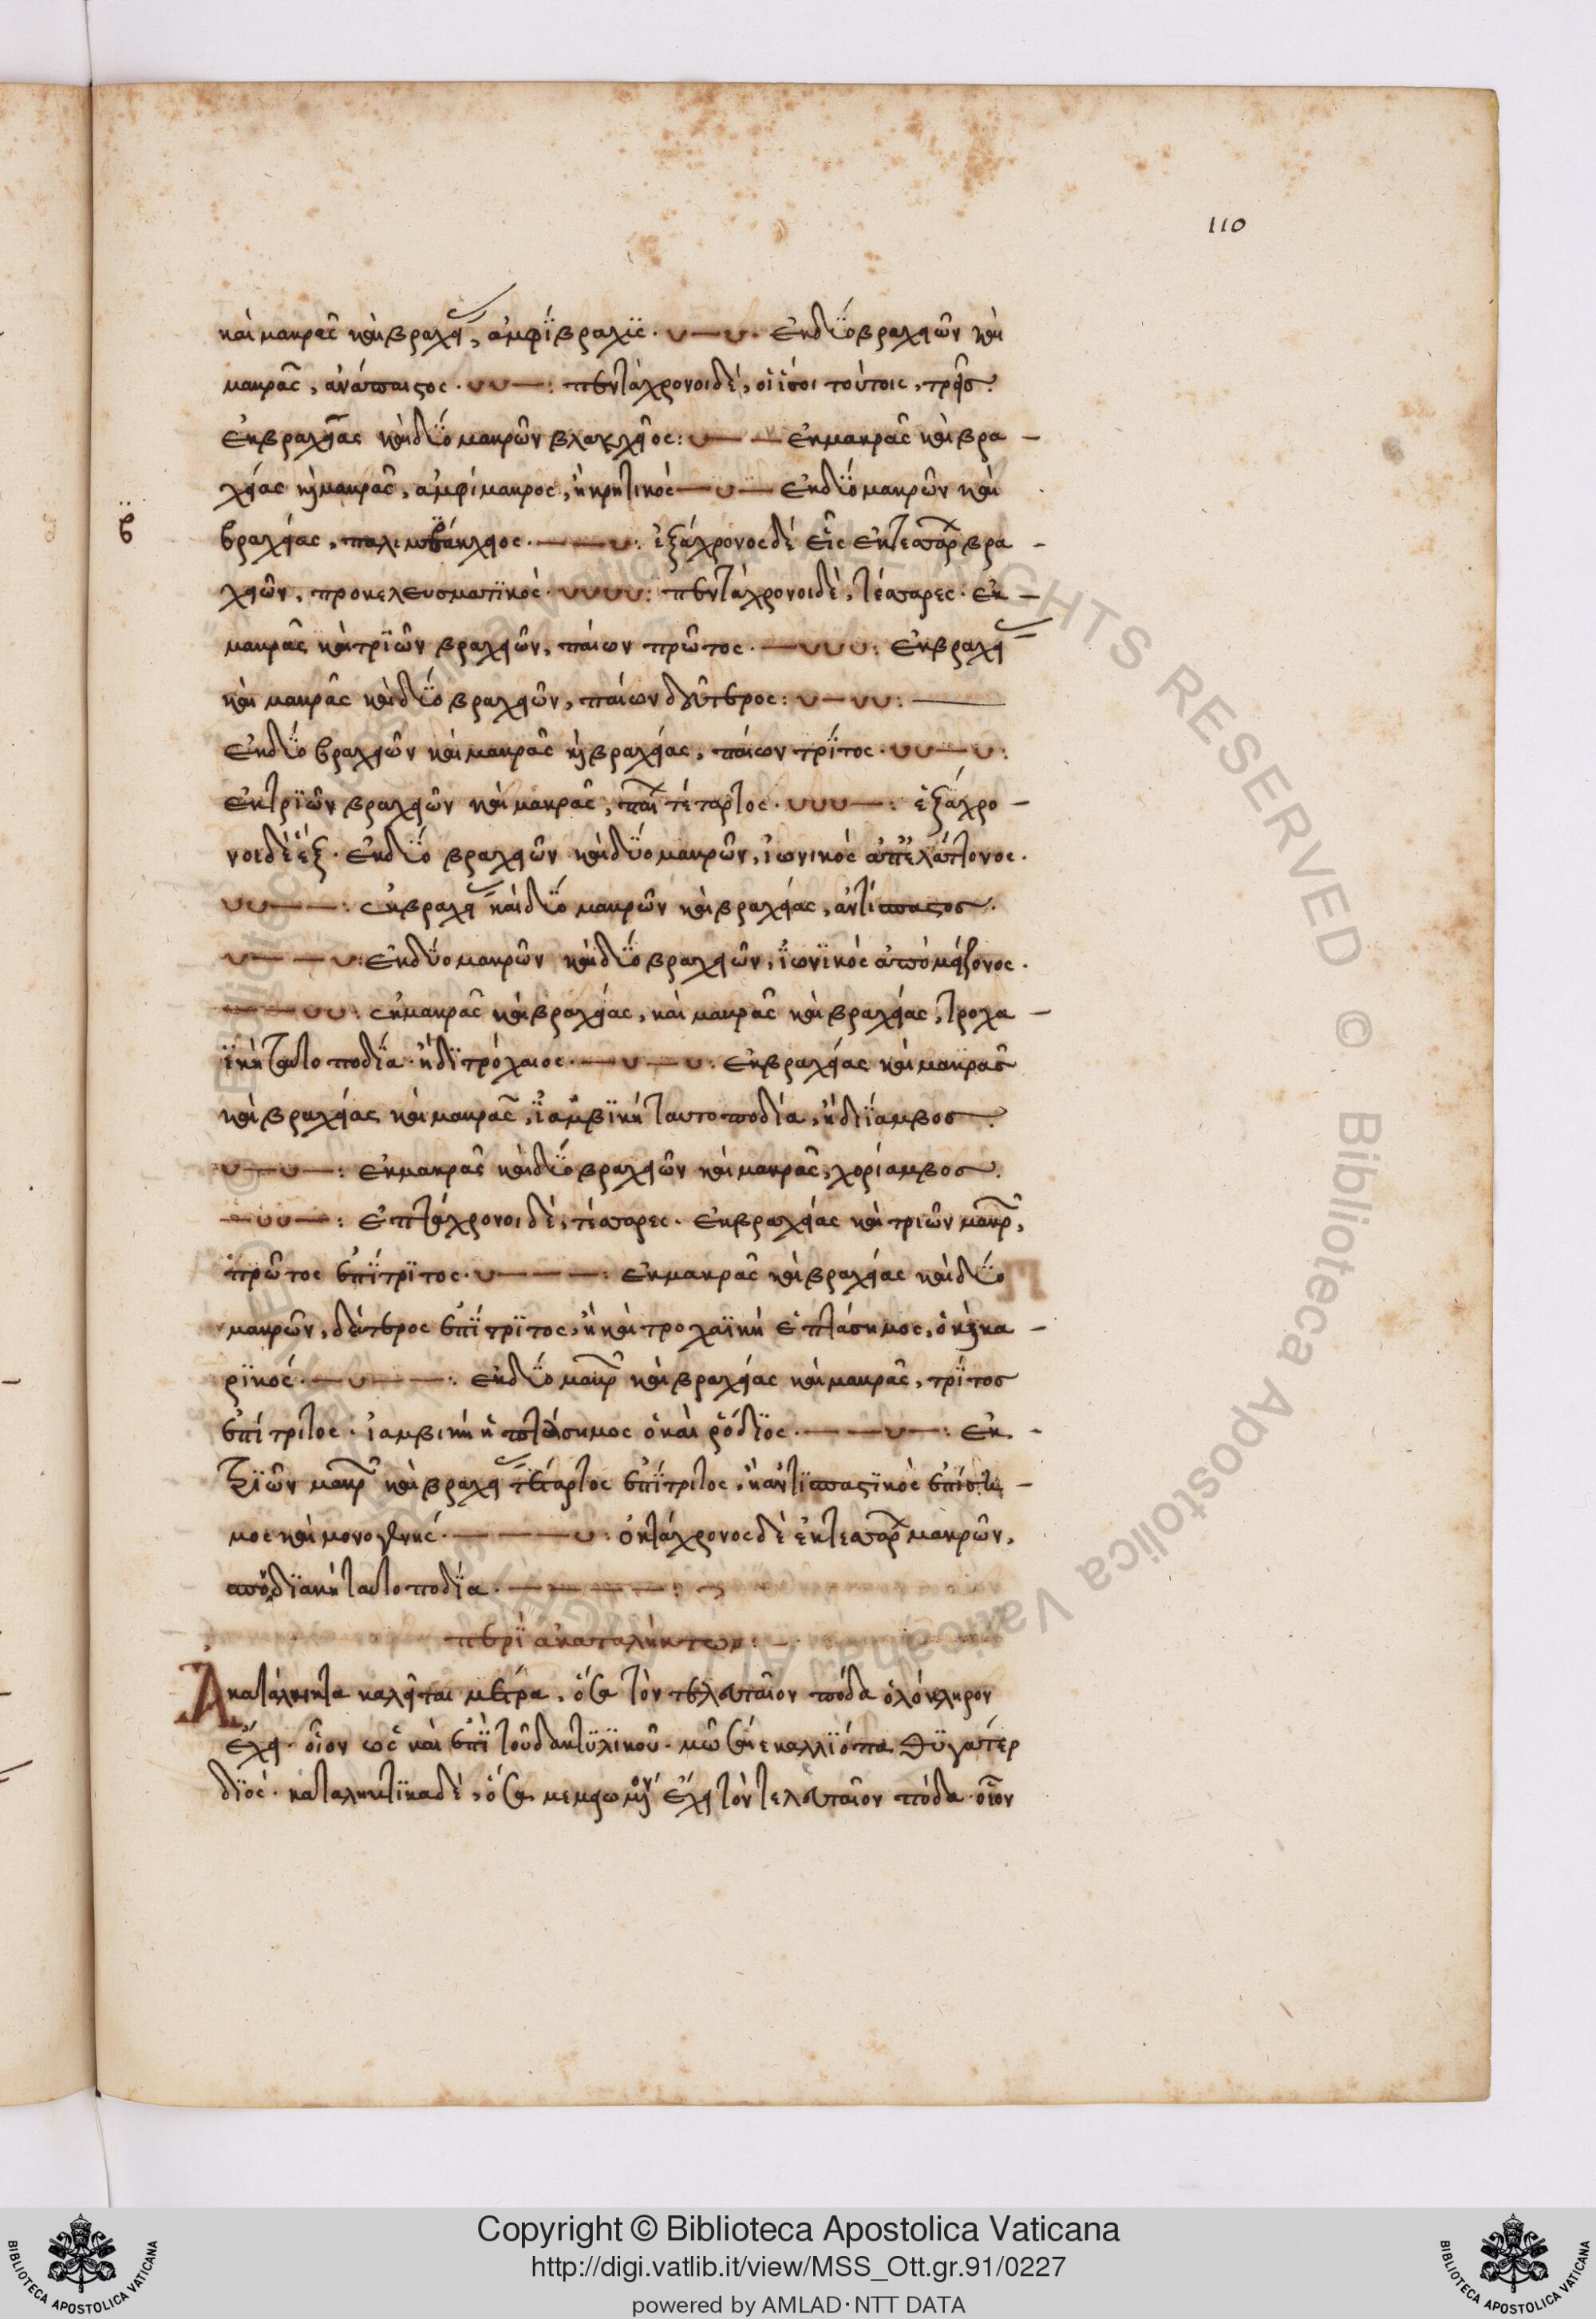 110
καὶ μακρᾶς καὶ βραχείας, ἀμφίβραχϋς · ᴗ — ᴗ · ἐκ δύο βραχειῶν καὶ
μακρᾶς, ἀνάπαιστος · ᴗ ᴗ — : πεντάχρονοι δὲ, οἱ ἴσοι τούτοις, τρεῖς ·
ἐκ βραχείας καὶ δύο μακρῶν βλακχεῖος : ᴗ — — ἐκ μακρᾶς καὶ βρα –
χείας καὶ μακρᾶς, ἀμφίμακρος, ἢ κρητικὸς — ᴗ — ἐκ δύο μακρῶν καὶ
β
βραχείας, παλιμβάκχιος · — — ᴗ : ἑξάχρονος δὲ εἷς ἐκ τεσσάρων βρα –
χειῶν, προκελευσματικὸς · ᴗ ᴗ ᴗ ᴗ : πεντάχρονοι δὲ, τέσσαρες · ἐκ –
μακρᾶς καὶ τριῶν βραχειῶν, παίων πρῶτος · — ᴗ ᴗ ᴗ : ἐκ βραχείας
καὶ μακρᾶς καὶ δύο βραχειῶν, παίων δεύτερος : ᴗ — ᴗ ᴗ :
ἐκ δύο βραχειῶν καὶ μακρᾶς καὶ βραχείας, παίων τρίτος · ᴗ ᴗ — ᴗ :
ἐκ τριῶν βραχειῶν καὶ μακρᾶς, παίων τέταρτος · ᴗ ᴗ ᴗ — : ἑξάχρο –
νοι δὲ ἕξ · ἐκ δύο βραχειῶν καὶ δύο μακρῶν, ἰωνικὸς ἀπ' ἐλάττονος ·
ᴗ ᴗ — — : ἐκ βραχείας καὶ δύο μακρῶν καὶ βραχείας, ἀντίσπαστος ·
ᴗ — — ᴗ : ἐκ δύο μακρῶν καὶ δύο βραχειῶν, ἰωνικὸς ἀπὸ μείζονος ·
— — ᴗ ᴗ : ἐκ μακρᾶς καὶ βραχείας, καὶ μακρᾶς καὶ βραχείας, τροχα –
ϊκὴ ταυτοποδία · ἢ διτρόχαιος · — ᴗ — ᴗ : ἐκ βραχείας καὶ μακρᾶς
καὶ βραχείας καὶ μακρᾶς, ἰαμβικὴ ταυτοποδία, ἢ διίαμβος ·
ᴗ — ᴗ — : ἐκ μακρᾶς καὶ δύο βραχειῶν καὶ μακρᾶς, χορίαμβος ·
— ᴗ ᴗ — : ἑπτάχρονοι δὲ, τέσσαρες · ἐκ βραχείας καὶ τριῶν μακρῶν,
πρῶτος ἐπίτριτος · ᴗ — — — : ἐκ μακρᾶς καὶ βραχείας καὶ δύο
μακρῶν, δεύτερος ἐπίτριτος, ἢ καὶ τροχαϊκὴ ἑπτάσημος, ὁ καὶ κα –
ρικός · — ᴗ — — : ἐκ δύο μακρῶν καὶ βραχείας καὶ μακρᾶς, τρίτος
ἐπίτριτος · ἰαμβικὴ ἑπτάσημος ὁ καὶ ῥόδιος · — — ᴗ — : ἐκ –
τριῶν μακρῶν καὶ βραχείας τέταρτος ἐπίτριτος, ἢ ἀντισπαστικὸς ἑπτάση –
μος καὶ μονογενής · — — — ᴗ : ὀκτάχρονος δὲ ἐκ τεσσάρων μακρῶν,
σπονδιακὴ ταυτοποδία · — — — — :
περὶ ἀκαταλήκτων : –
Ἀκατάληκτα καλεῖται μέτρα, ὅσα τὸν τελευταῖον πόδα ὁλόκληρον
ἔχει · οἷον ὡς καὶ ἐπὶ τοῦ δακτυλικοῦ · μῶσ' ἄγε καλλιόπα θύγατερ
διός · καταληκτικὰ δὲ, ὅσα μεμειωμένον ἔχει τὸν τελευταῖον πόδα · οἷον
Copyright © Biblioteca Apostolica Vaticana
http://digi.vatlib.it/view/MSS_Ott.gr.91/0227
powered by AMLAD·NTT DATA